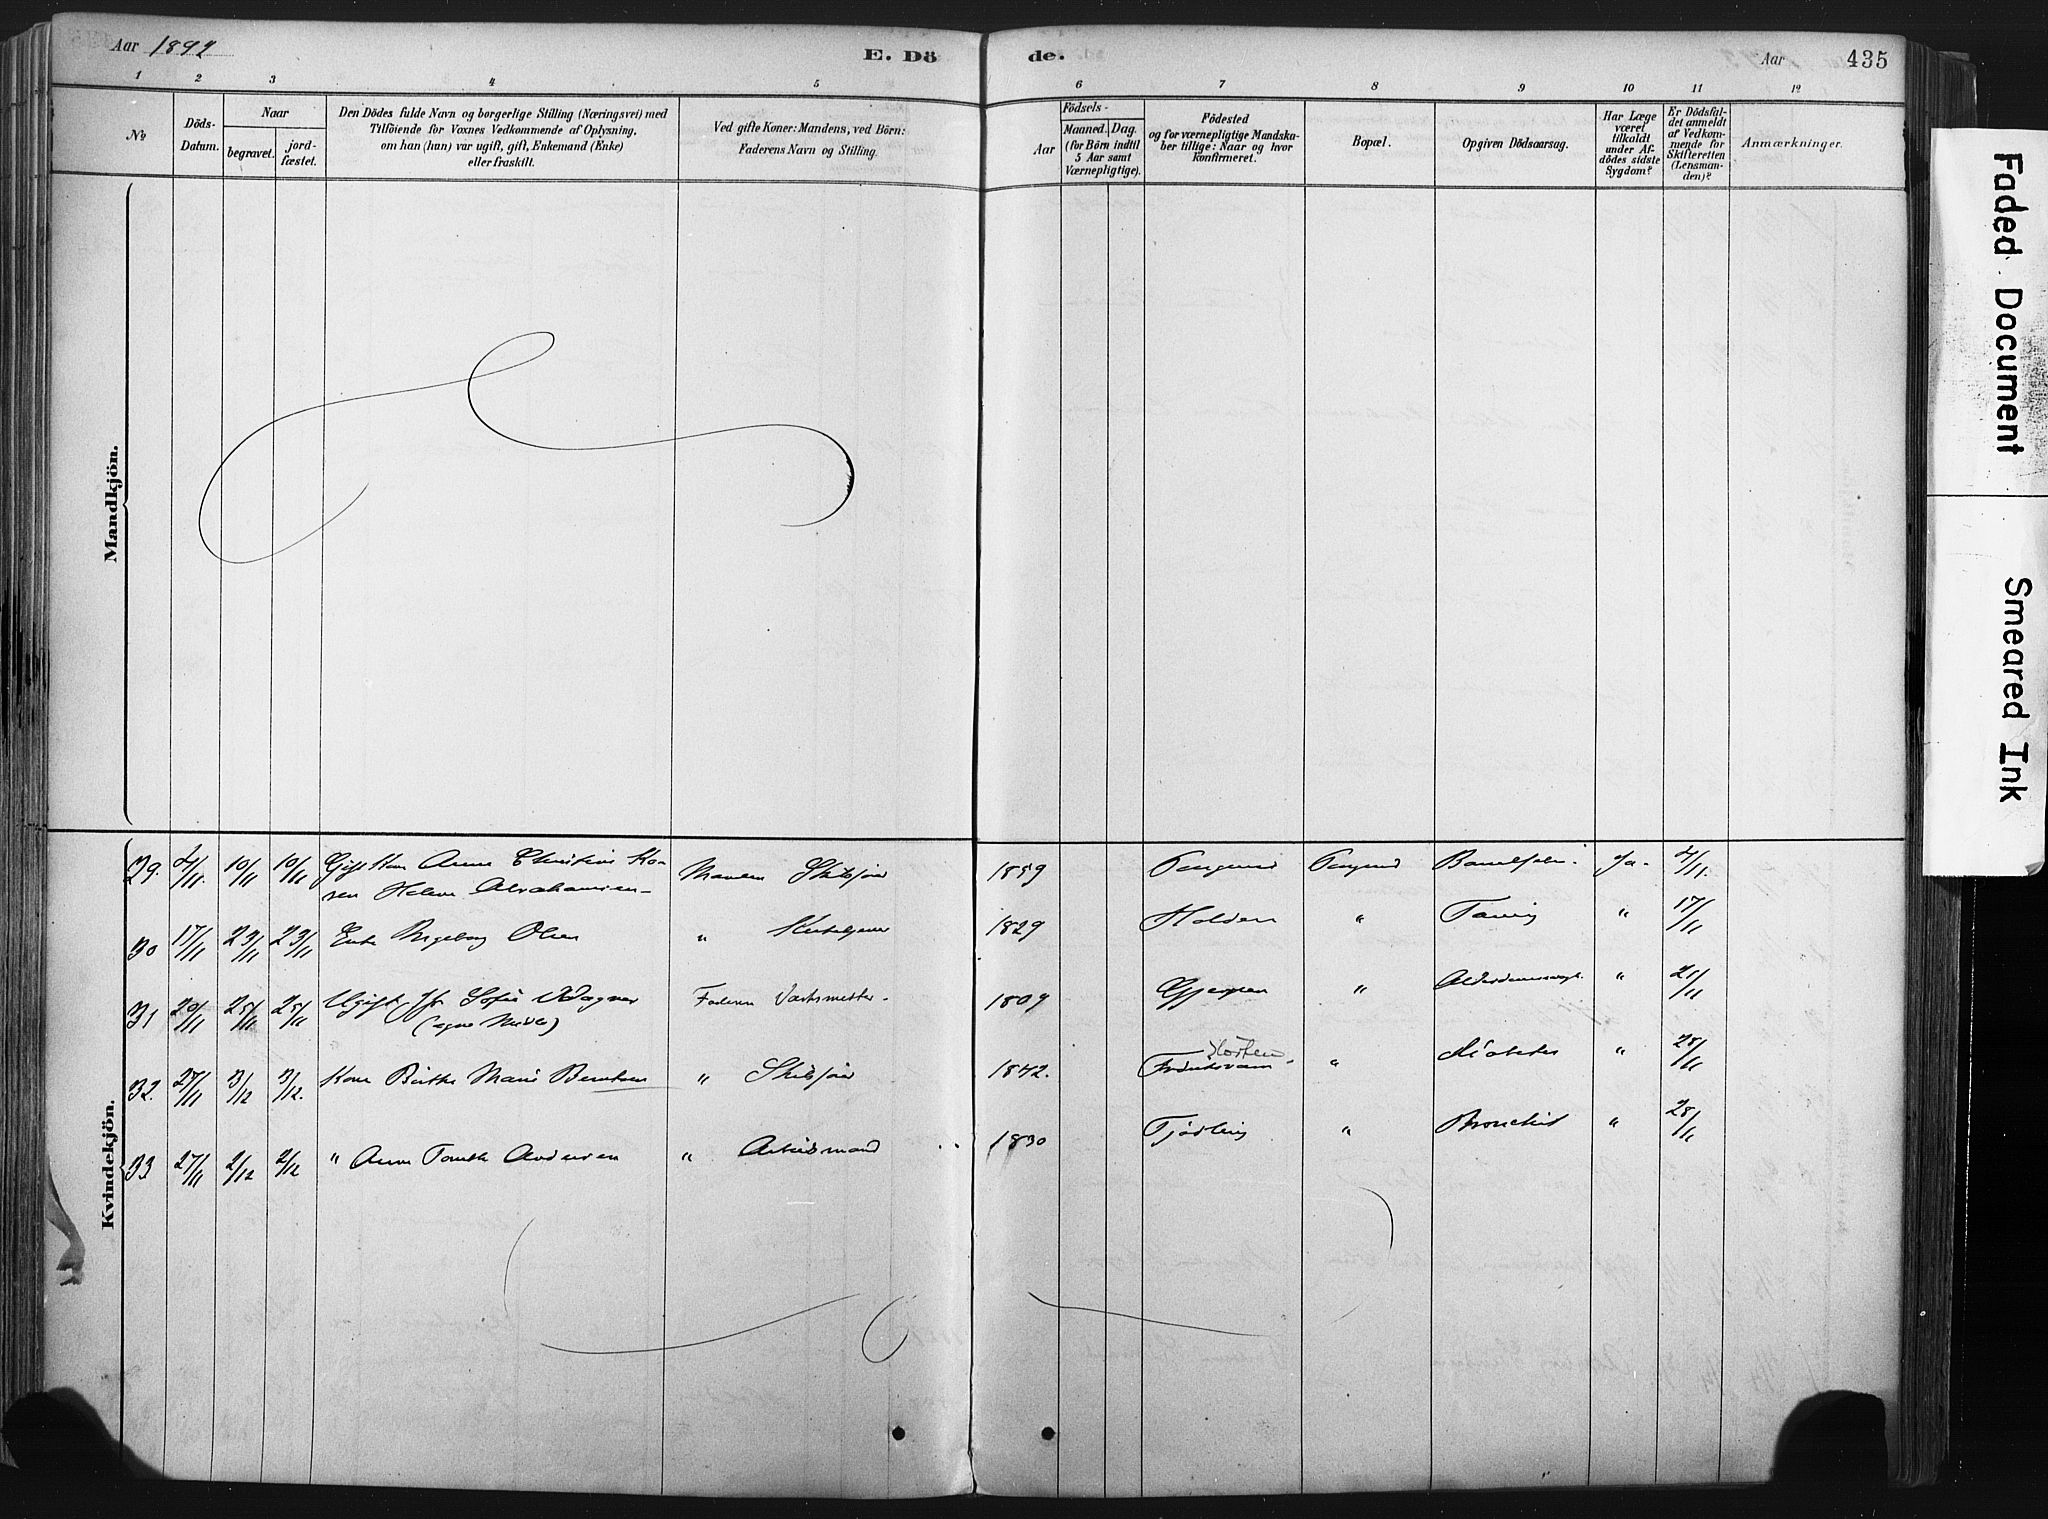 Aar 1892
E. Dö
de.
Aar
435
1 2 3 4 5 6 7 8 9 10 11 12
No
Döds-
Datum.
Naar
begravet.
jord-
fæstet.
Den Dödes fulde Navn og borgerlige Stilling (Næringsvei) med
Tilföiende for Voxnes Vedkommende af Oplysning,
om han (hun) var ugift, gift, Enkemand (Enke)
eller fraskilt.
Ved gifte Koner: Mandens, ved Börn:
Faderens Navn og Stilling.
Födsels-
Aar
Maaned.
Dag.
(for Börn indtil
5 Aar samt
Værnepligtige).
Födested
og for værnepligtige Mandska-
ber tillige: Naar og hvor
konfirmeret.
Bopæl.
Opgiven Dödsaarsag.
Har Læge
været
tilkaldt
under Af-
dödes sidste
Sygdom?
Er Dödsfal-
det anmeldt
af Vedkom-
mende for
Skifteretten
(Lensman-
den)?
Anmærkninger.
Mandkjön.
Kvindekjön.
29. 4/11. 10/11 10/11 Gift Kone Anne Christine Ka-
ren Helene Abrahamsen Manden 1859 Ja. 4/11.
30 17/11 23/11 23/11 Enke Ingeborg Olsen " 1829 Holden " " 17/11
31 20/11 25/11 25/11 Ugift Sofie Wagner Faderen 1809 Gjerpen " " 21/11
32. 27/11 3/12 3/12. Kone Birthe Marie Berntsen " 1842. Horten " Diabetes " 28/11
33 27/11 2/12 2/12 " Anne Andersen " Arbeidsmand 1830 Tjödling " Bronchit " 28/11
Faded Document
Smeared Ink